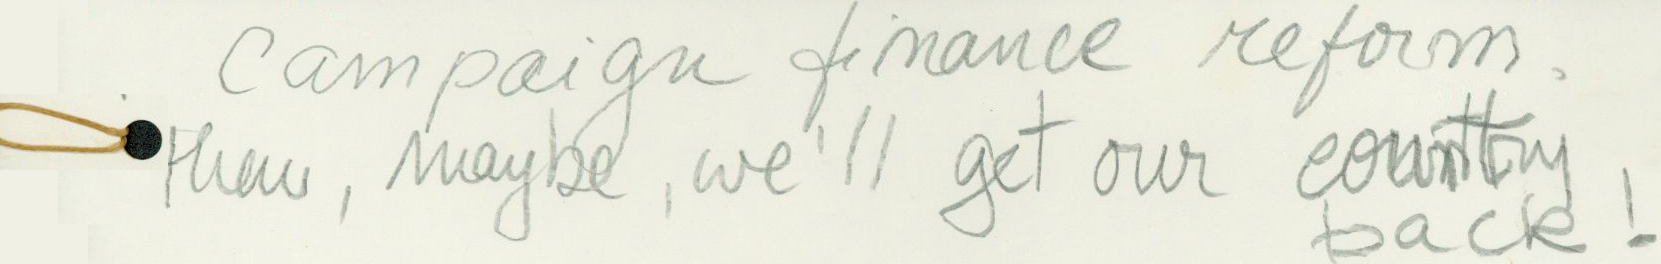 Campaign finance reform.
Then, Maybe, we'll get our country
back!